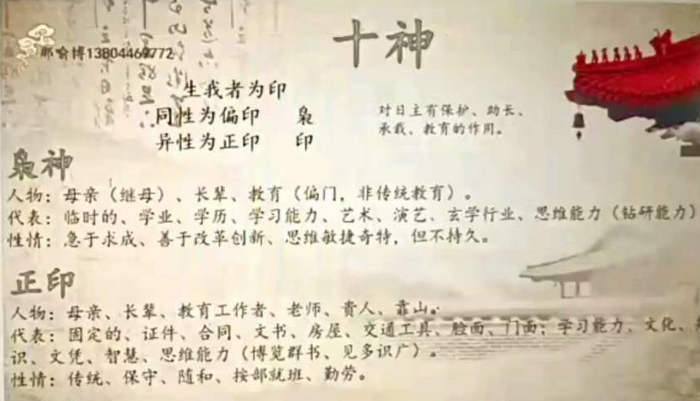 郎喻博13804469772
十神
生我者为印
同性为偏印 枭
异性为正印 印
对日主有保护、助长、
承载、教育的作用。
枭神
人物：母亲（继母）、长辈、教育（偏门，非传统教育）。
代表：临时的、学业、学历、学习能力、艺术、演艺、玄学行业、思维能力（钻研能力）
性情：急于求成、善于改革创新、思维敏捷奇特，但不持久。
正印
人物：母亲、长辈、教育工作者、老师、贵人、靠山。
代表：固定的、证件、合同、文书、房屋、交通工具、脸面、门面；学习能力、文化、
识、文凭、智慧、思维能力（博览群书、见多识广）。
性情：传统、保守、随和、按部就班、勤劳。